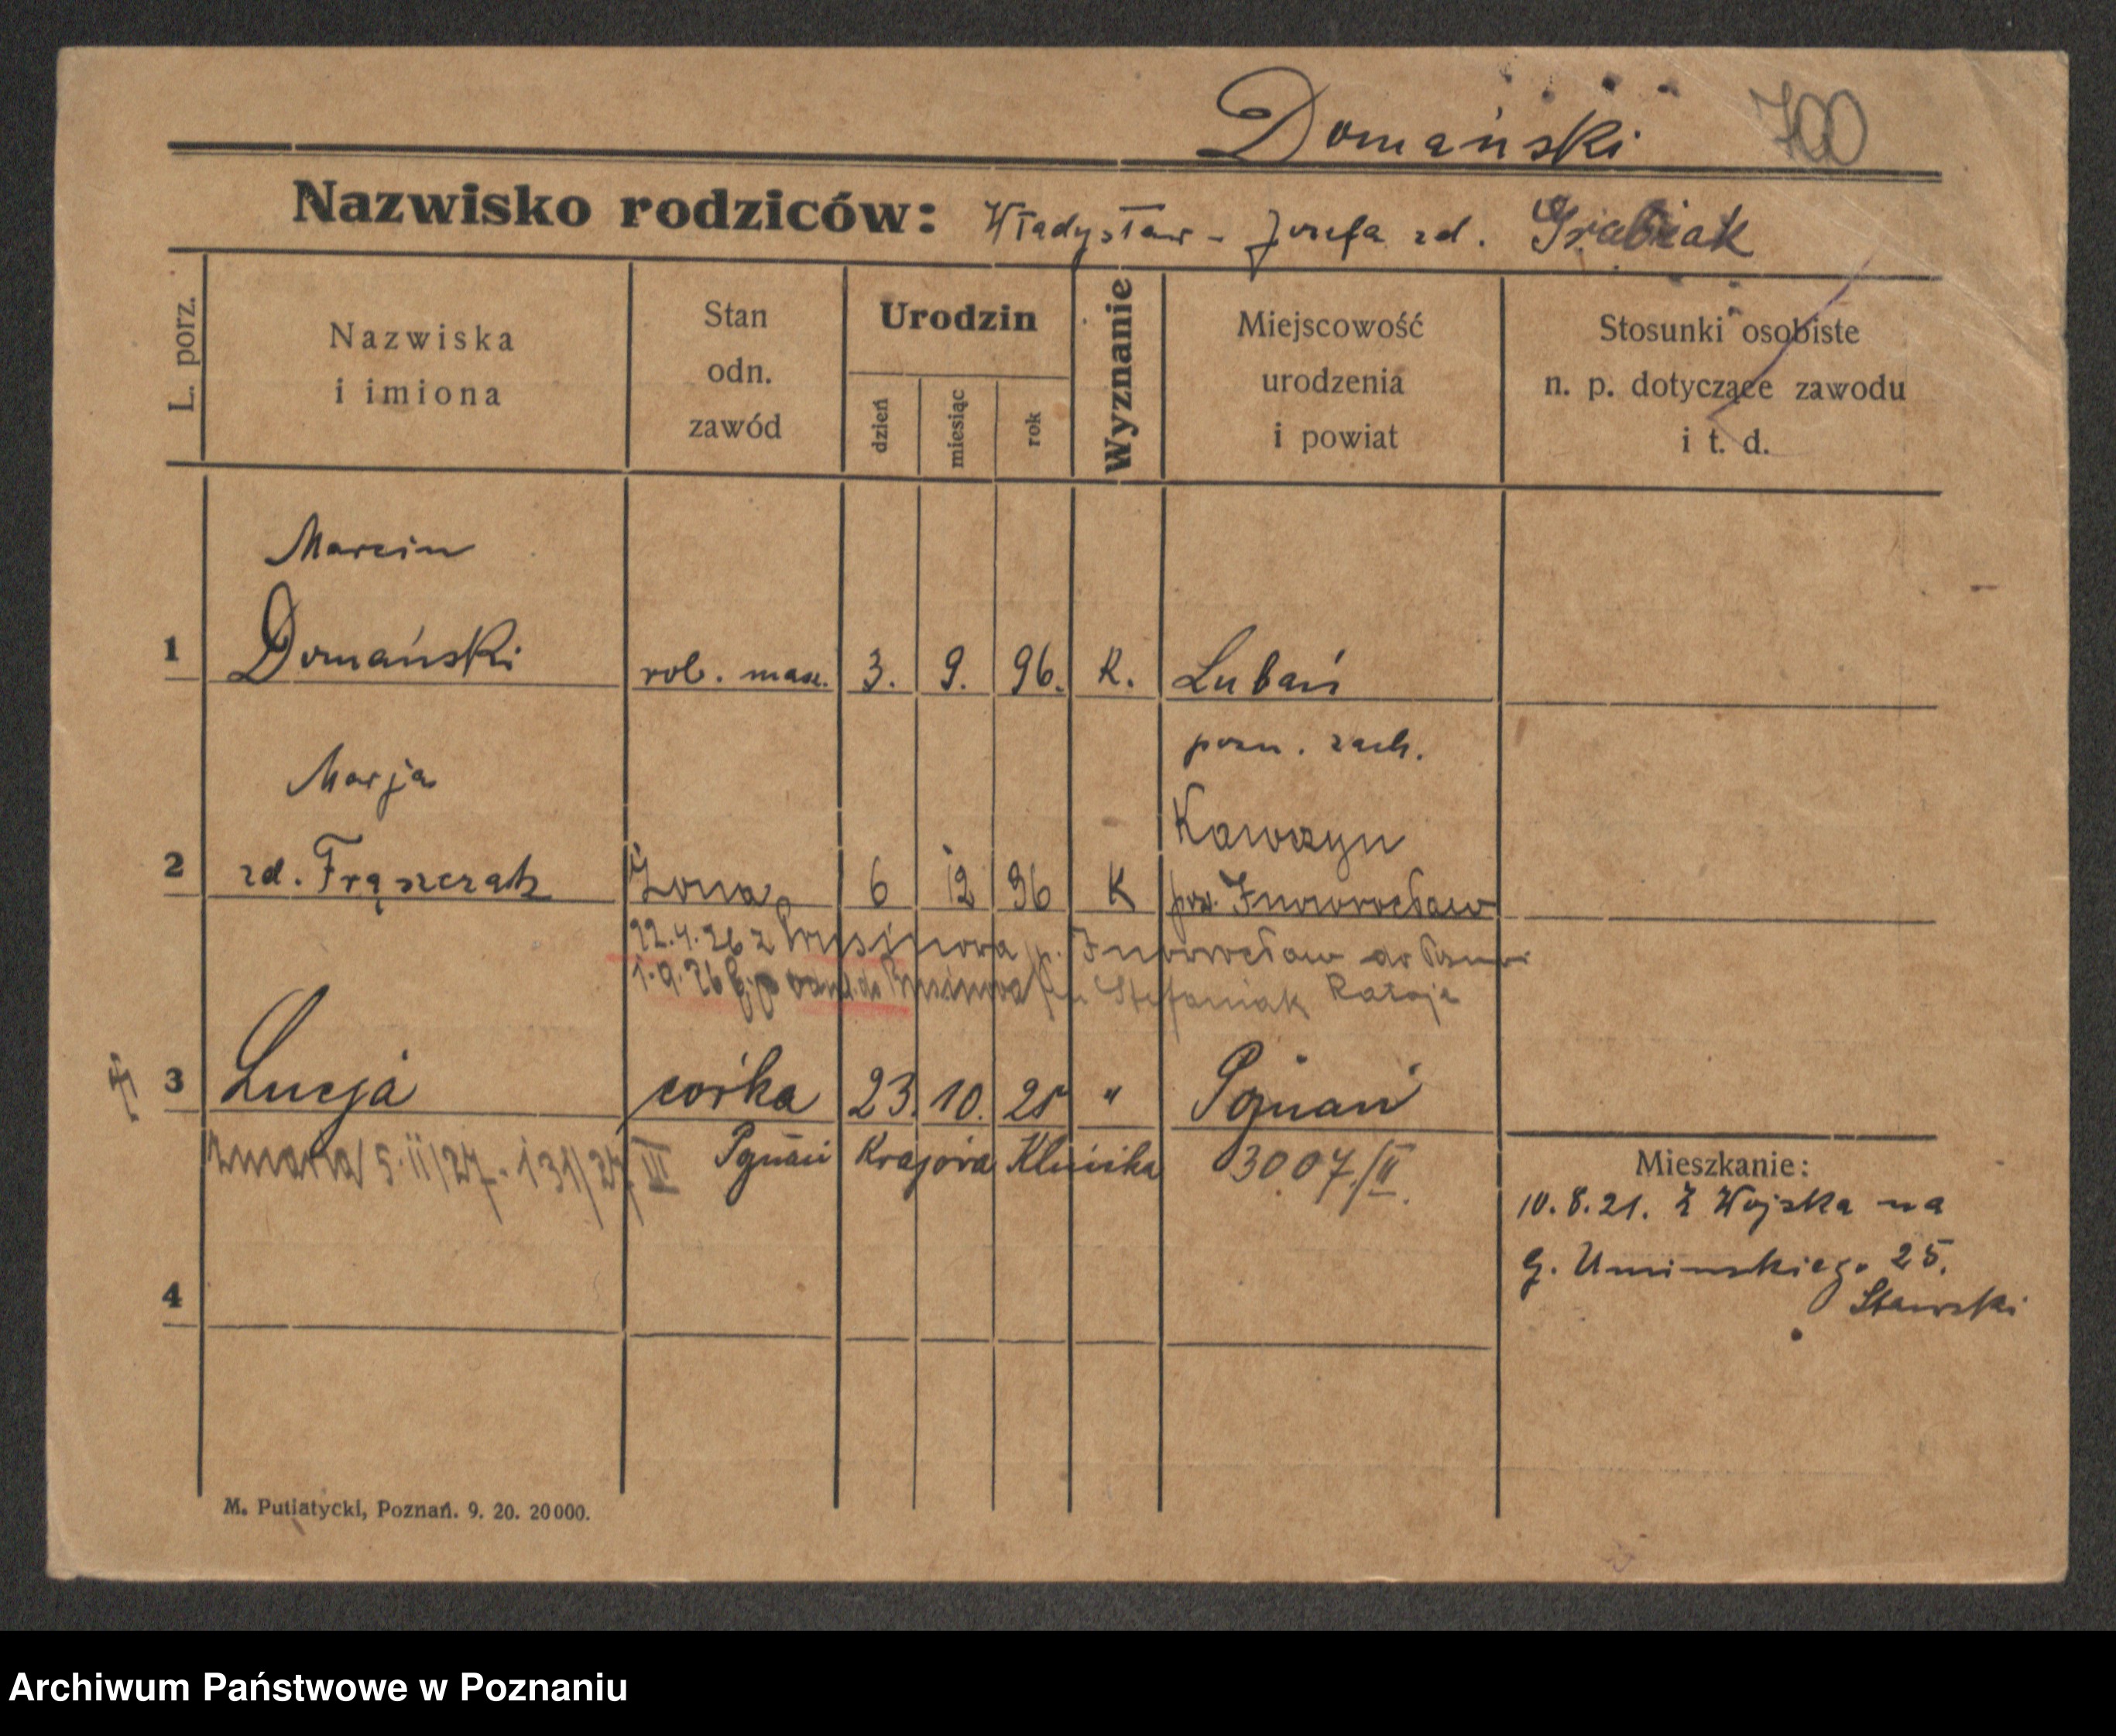 Domański 700
Nazwisko rodziców: Władysław - Jozefa zd. Grabiak
L. porz.
Nazwiska
i imiona
Stan
odn.
zawód
Urodzin
dzień
miesiąc
rok
Wyznanie
Miejscowość
urodzenia
i powiat
Stosunki osobiste
n. p. dotyczące zawodu
i t. d.
Marcin
1 Domański rob. masz. 3. 9. 96. K. Lubań
pozn. zach.
Marja
Kawczyn
2 zd. Frąszczak żona 6 12 96 K pow. Inowrocław
22.4.26 z Prusinowa p. Inowrocław do
1.9.26 do Stefaniak
3 Lucja corka 23. 10. 25 " Poznań
zmarła 5.II/27 - 131/27 III Poznań Krajowa Klinika 3007/II.
Mieszkanie:
10.8.21. Z Wojska na
G. Uminskiego 25.
Stawski
4
M. Putiatycki, Poznań. 9. 20. 20000.
Archiwum Państwowe w Poznaniu